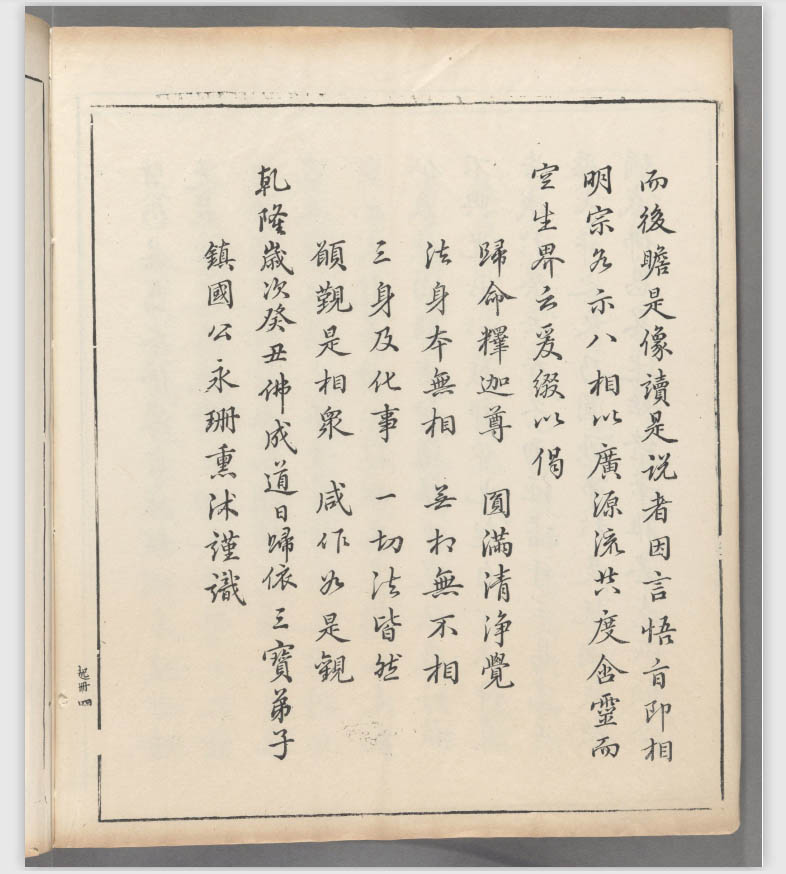 而後瞻是像讀是說者因言悟旨即相
明宗名示八相以廣源流共度含靈而
空生界云爰綴以偈
歸命釋迦尊　圓滿清淨覺
法身本無相　無相無不相
三身及化事　一切法皆然
願觀是相衆　咸作如是觀
乾隆歲次癸丑佛成道日歸依三寶弟子
鎮國公永珊熏沐謹識
起冊四